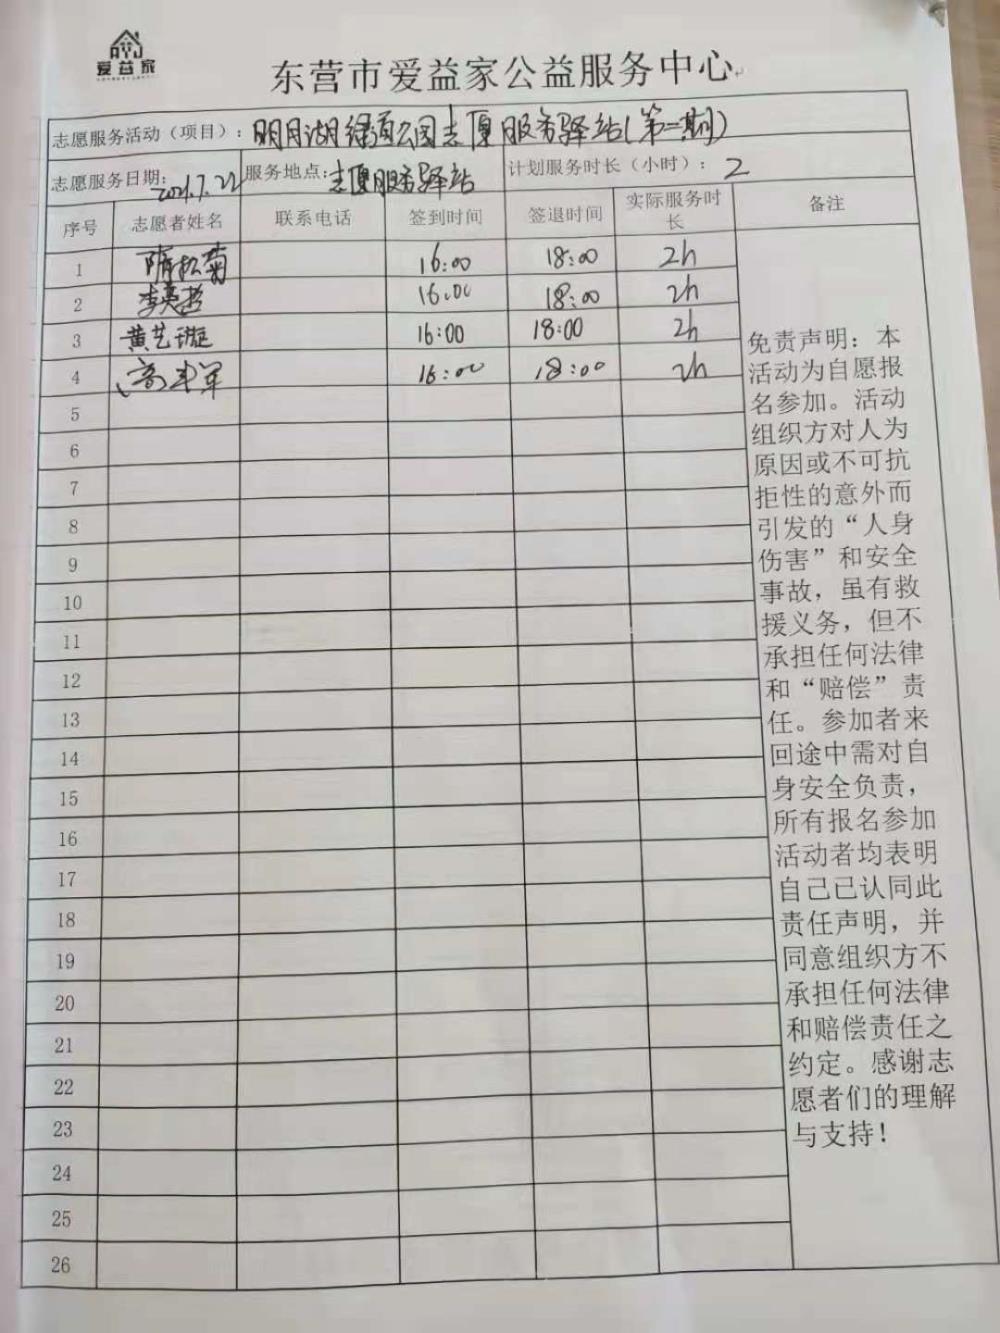 爱益家
东营市爱益家公益服务中心
志愿服务活动（项目）：明月湖绿道公园志愿服务驿站（第二期）
志愿服务日期：2021.7.22 服务地点：志愿服务驿站 计划服务时长（小时）：2
序号 志愿者姓名 联系电话 签到时间 签退时间 实际服务时长 备注
1 隋松菊 16:00 18:00 2h
2 16:00 18:00 2h
3 黄艺璇 16:00 18:00 2h
4 16:00 18:00 2h
5
6
7
8
9
10
11
12
13
14
15
16
17
18
19
20
21
22
23
24
25
26
免责声明：本
活动为自愿报
名参加。活动
组织方对人为
原因或不可抗
拒性的意外而
引发的“人身
伤害”和安全
事故，虽有救
援义务，但不
承担任何法律
和“赔偿”责
任。参加者来
回途中需对自
身安全负责，
所有报名参加
活动者均表明
自己已认同此
责任声明，并
同意组织方不
承担任何法律
和赔偿责任之
约定。感谢志
愿者们的理解
与支持！